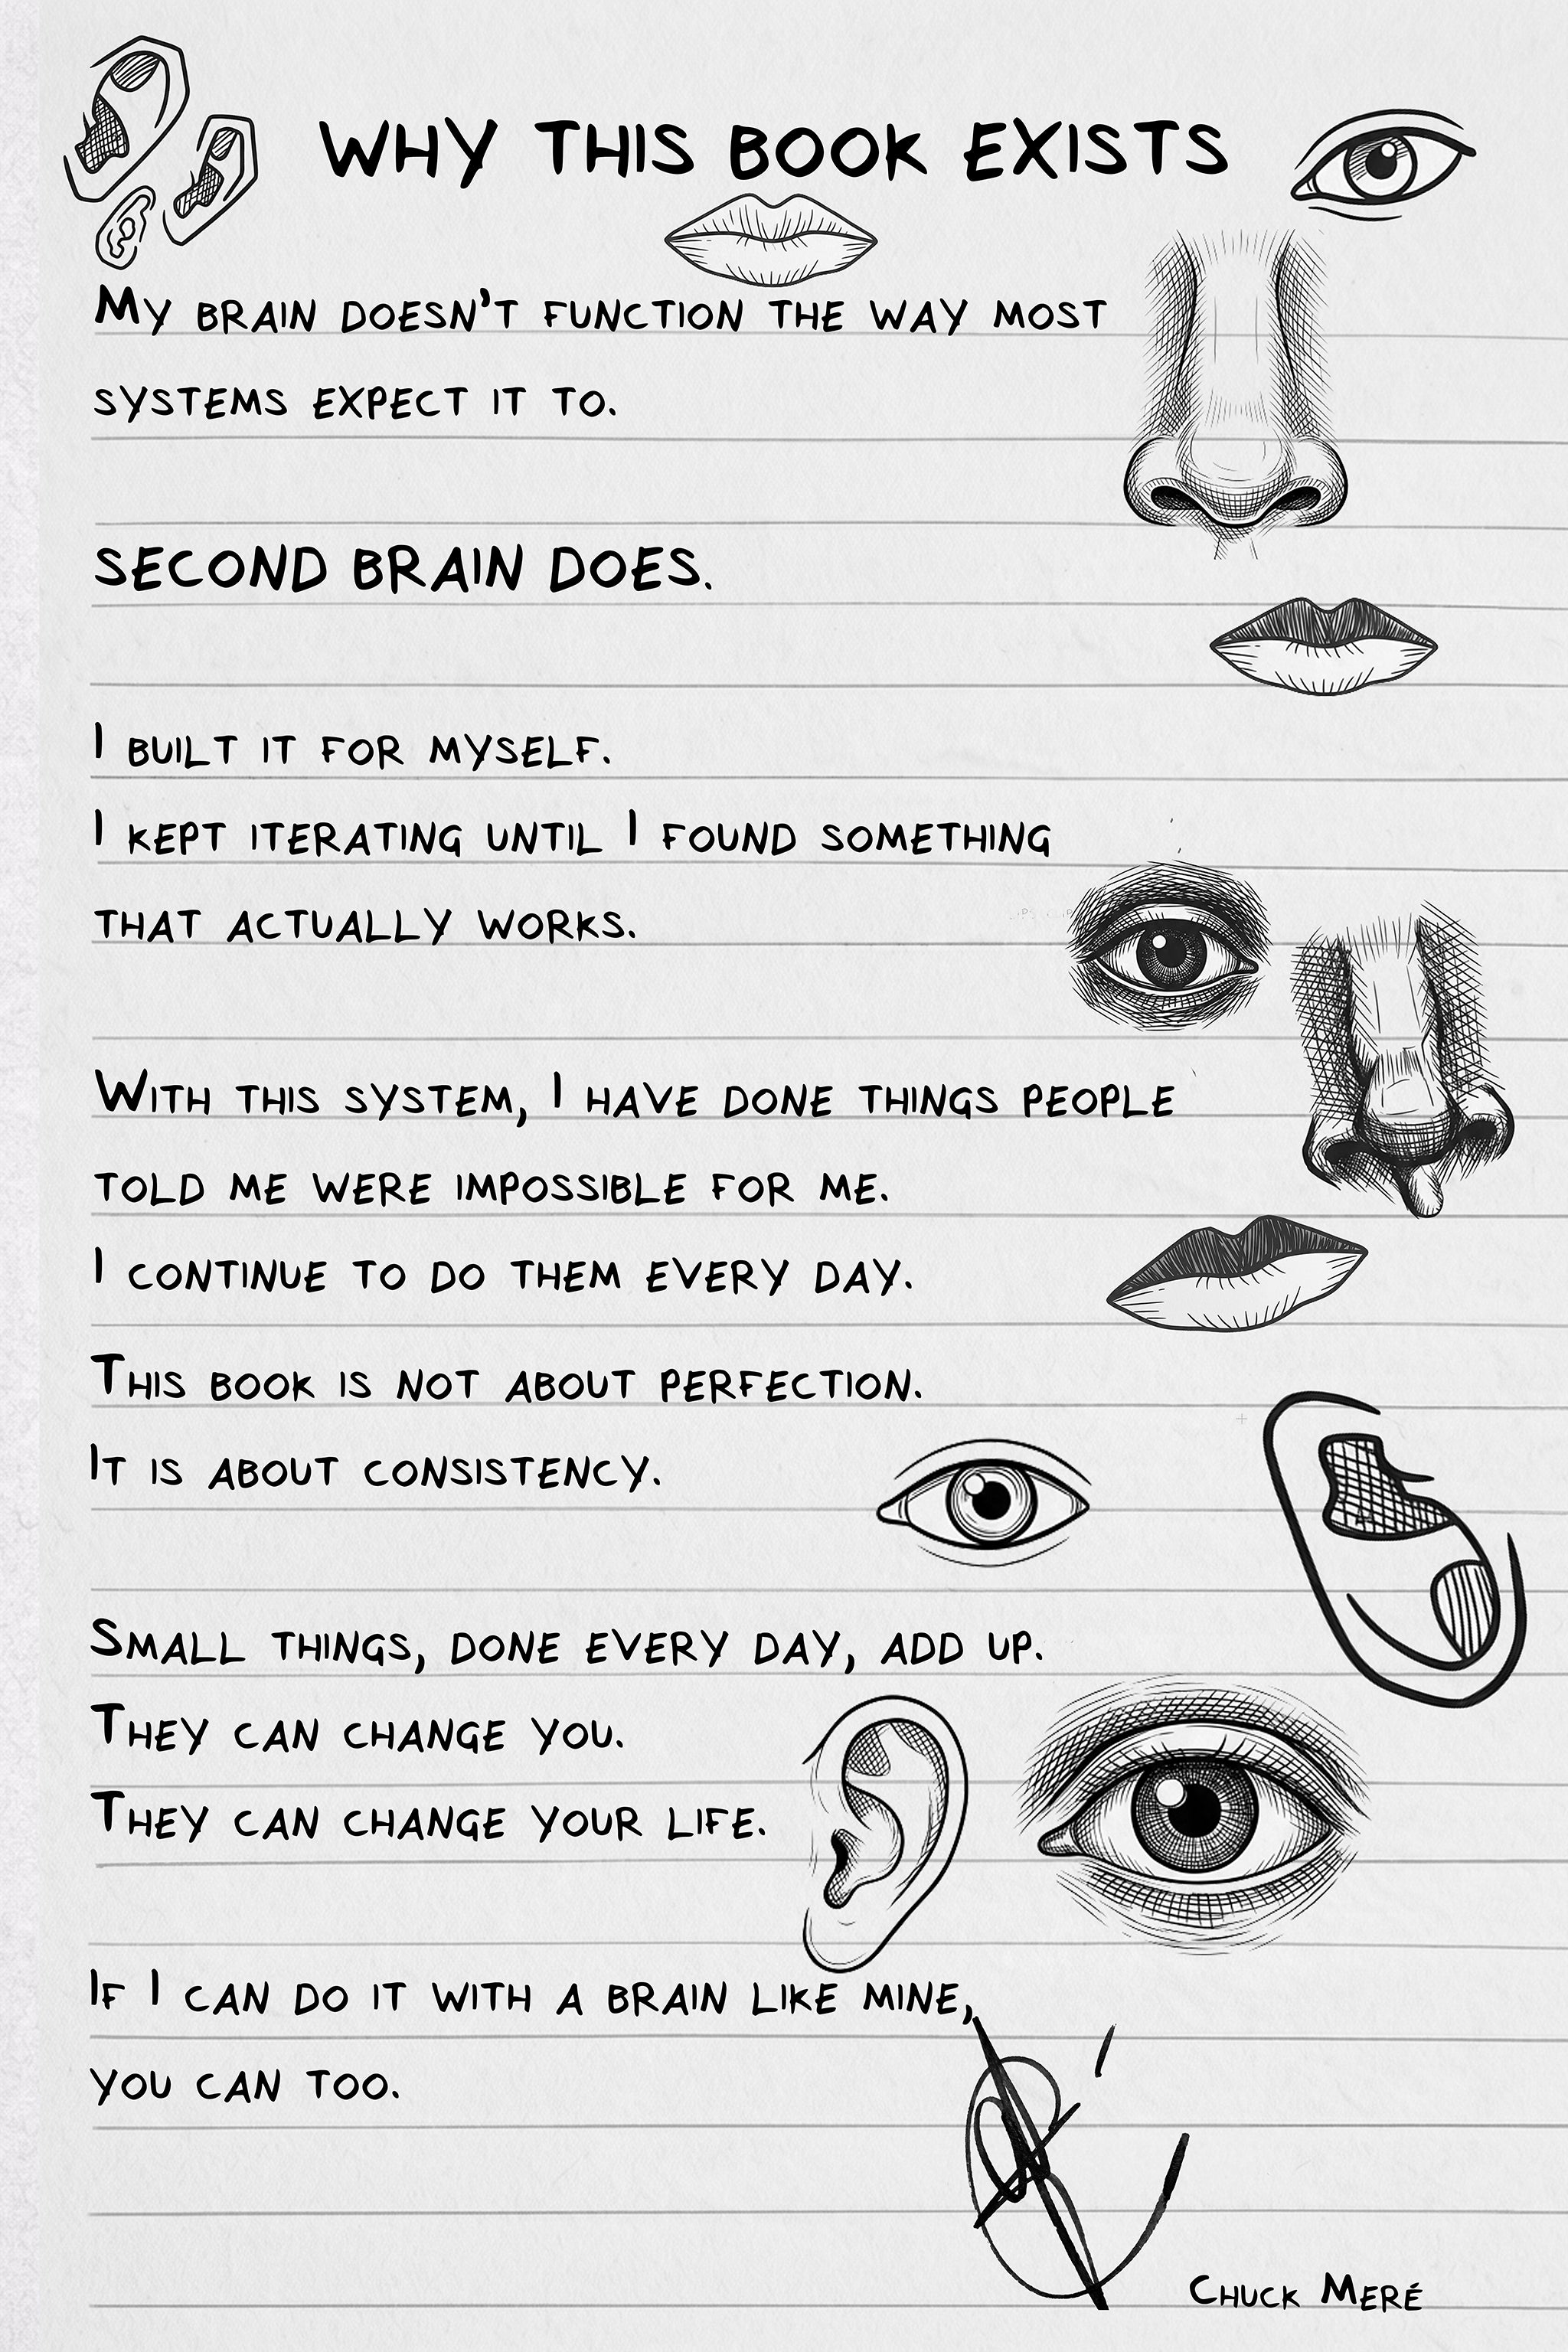 WHY THIS BOOK EXISTS
MY BRAIN DOESN'T FUNCTION THE WAY MOST
SYSTEMS EXPECT IT TO.
SECOND BRAIN DOES.
I BUILT IT FOR MYSELF.
I KEPT ITERATING UNTIL I FOUND SOMETHING
THAT ACTUALLY WORKS.
WITH THIS SYSTEM, I HAVE DONE THINGS PEOPLE
TOLD ME WERE IMPOSSIBLE FOR ME.
I CONTINUE TO DO THEM EVERY DAY.
THIS BOOK IS NOT ABOUT PERFECTION.
IT IS ABOUT CONSISTENCY.
SMALL THINGS, DONE EVERY DAY, ADD UP.
THEY CAN CHANGE YOU.
THEY CAN CHANGE YOUR LIFE.
IF I CAN DO IT WITH A BRAIN LIKE MINE,
YOU CAN TOO.
CHUCK MERÉ